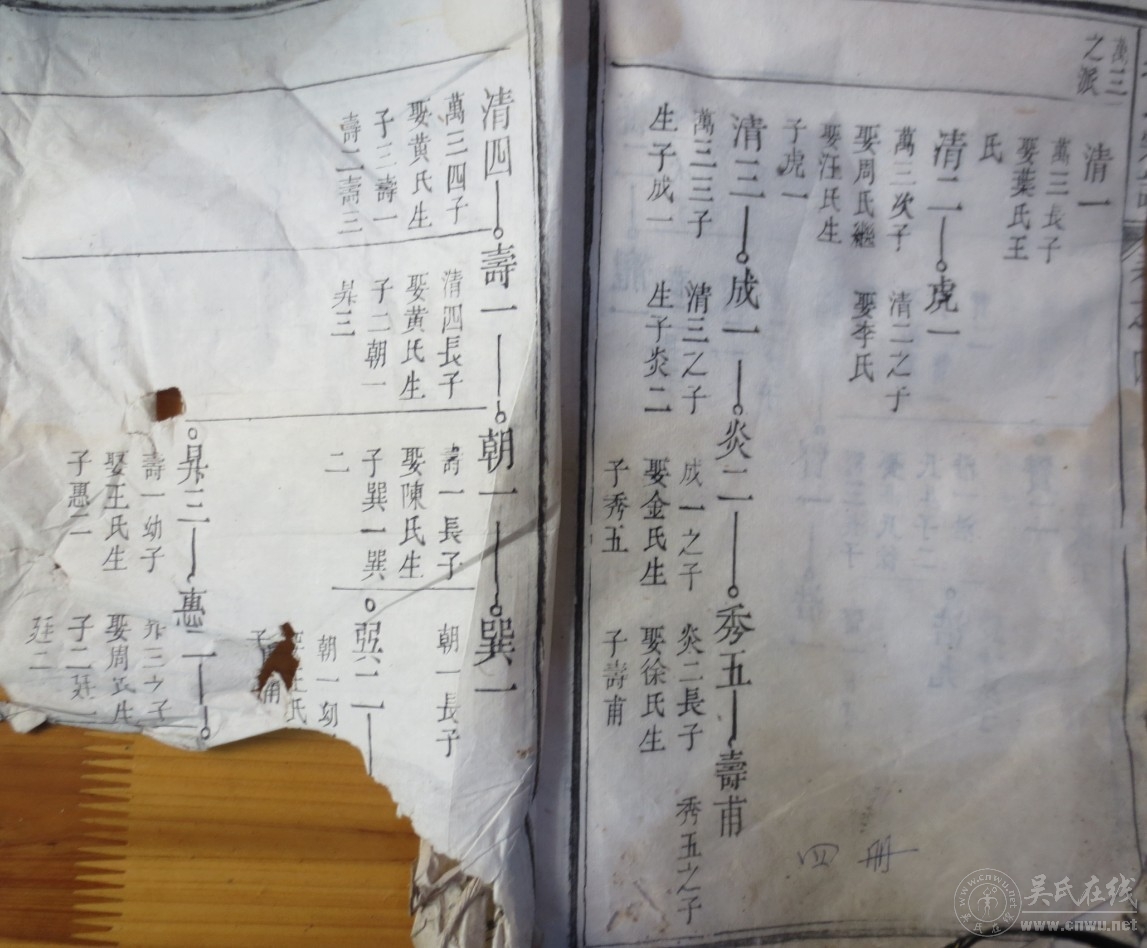 萬三
之派
清一
萬三長子
娶葉氏王
氏
清二
萬三次子
娶周氏繼
娶汪氏生
子虎一
虎一
清二之子
娶李氏
清三
萬三三子
生子成一
成一
清三之子
生子炎二
炎二
成一之子
娶金氏生
子秀五
秀五
炎二長子
娶徐氏生
子壽甫
壽甫
秀五之子
四册
清四
萬三四子
娶黃氏生
子三壽一
壽二壽三
壽一
清四長子
娶黃氏生
子二朝一
昇三
朝一
壽一長子
娶陳氏生
子巽一巽
二
巽一
朝一長子
巽二
朝一幼
氏
子
昇三
壽一幼子
娶王氏生
子惠二
惠二
昇三之子
娶周氏生
子二廷一
廷二
吳氏在线
www.cnwu.net